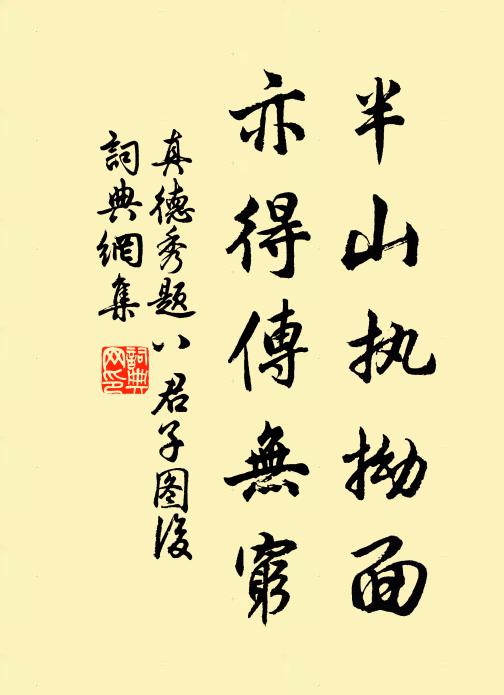 半山执拗面
亦得傳無窮
真德秀題八君子图後
詞典網集
詞典网印